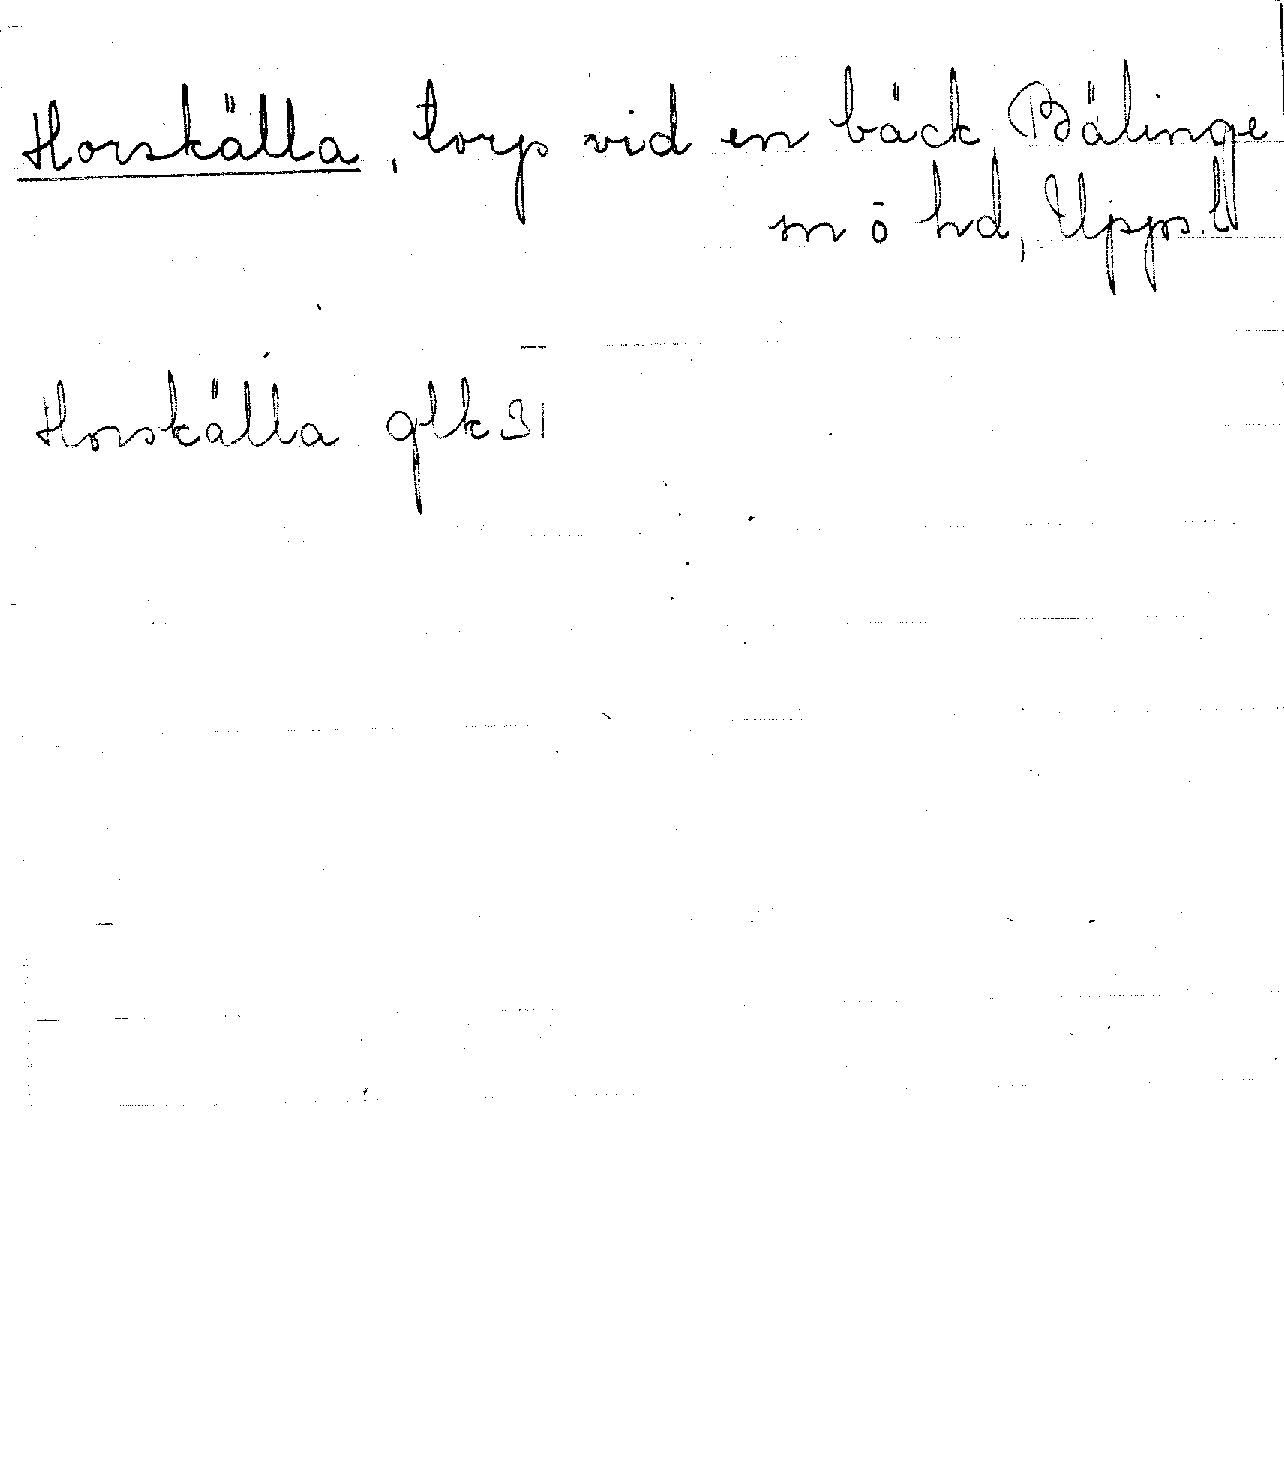 Horskälla, torp vid en bäck, Bälinge
m ö hd, Upps. l
Horskälla glk 31